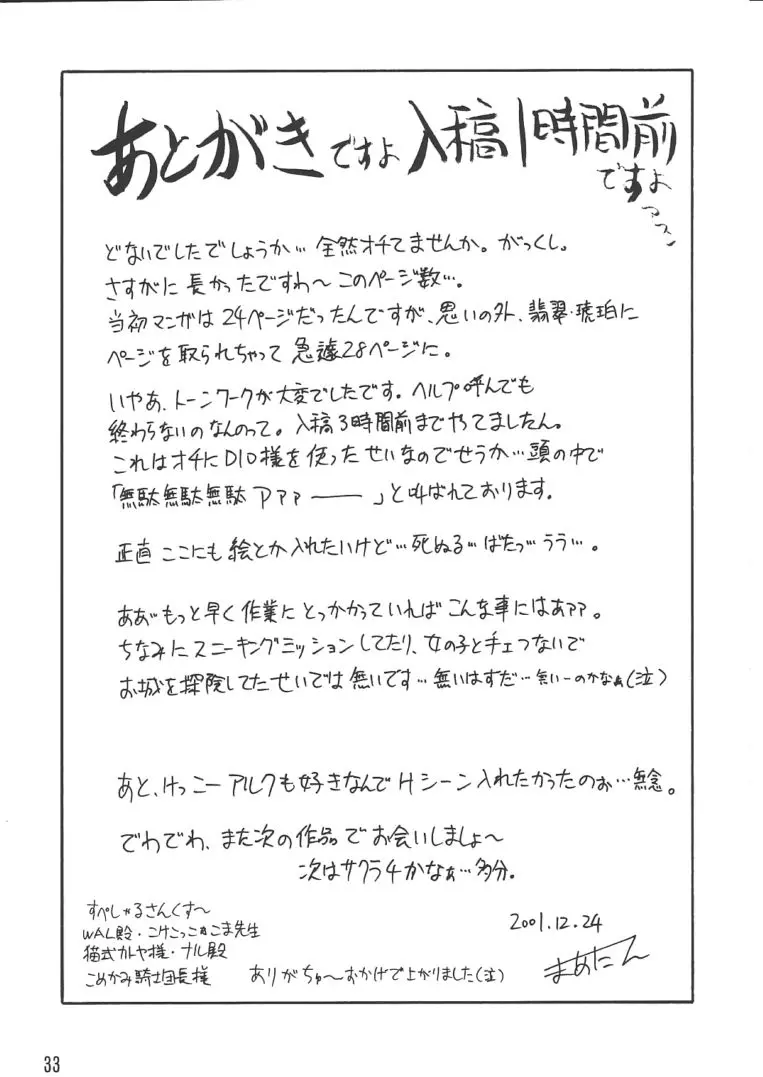 あとがきですよ 入稿1時間前
ですよ
どないでしたでしょうか… 全然オチてませんか。がっくし。
さすがに 長かったですわ〜 このページ数…。
当初マンガは 24ページだったんですが、思いの外、翡翠・琥珀に
ページを取られちゃって 急遽28ページに。
いやあ、トーンワークが大変でしたです。ヘルプ呼んでも
終わらないのなんのって。入稿3時間前までやってましたん。
これはオチにDIO様を使ったせいなのでせうか…頭の中で
「無駄無駄無駄アァァ───」と叫ばれております。
正直 ここにも 絵とか入れたいけど…死ぬる…ばたっ…うう…。
ああ…もっと早く作業に とっかかっていれば こんな事にはあァァ。
ちなみに スニーキングミッションしてたり、女の子と手ェつないで
お城を探険してたせいでは 無いです…無いはずだ…無いーのかなぁ(泣)
あと、けっこーアルクも好きなんで Hシーン入れたかったのぉ…無念。
でわでわ、また次の作品で お会いしましょ〜
次はサクラ4かなぁ…多分。
すぺしゃるさんくす〜
WAL殿・こけこっこぉこま先生
猫式カトヤ様・ナル殿
こめかみ騎士団長様 ありがちゅ〜おかげで上がりました(泣)
2001.12.24
まあたん
33